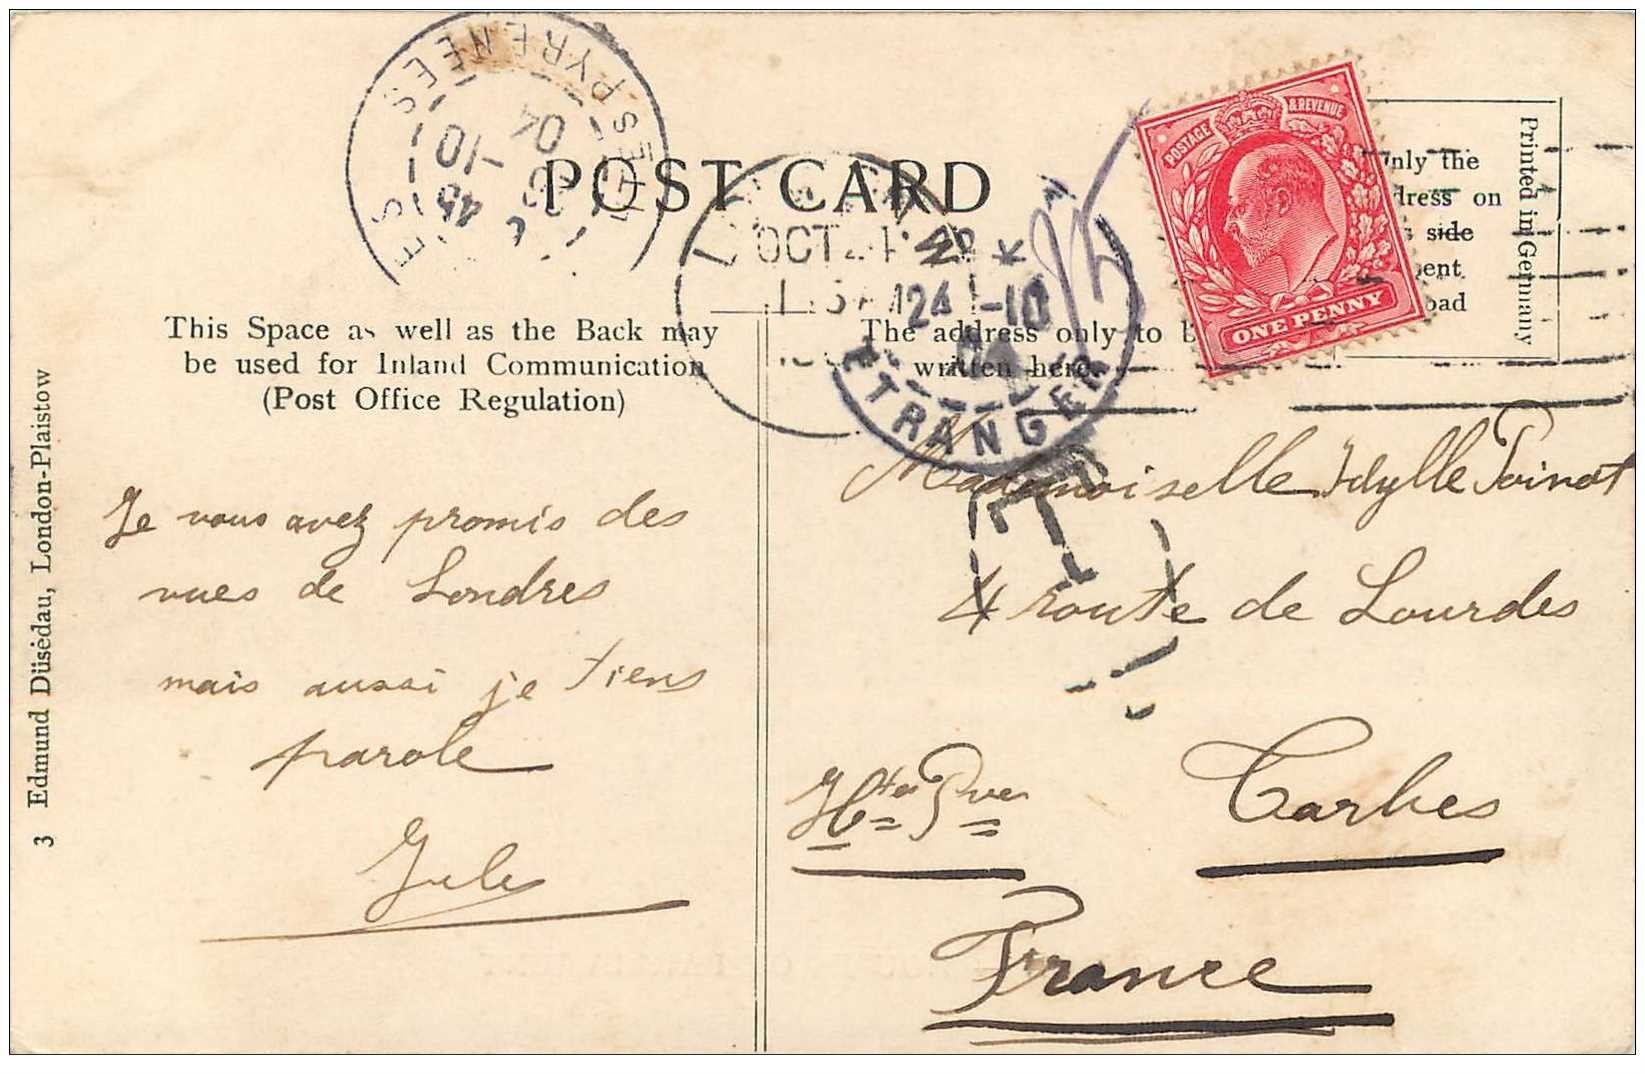 HTES PYRENEES
10
04
45
POST CARD
OCT 24
24 -10
ETRANGER
POSTAGE & REVENUE
ONE PENNY
Only the
address on
side
sent
Printed in Germany
This Space as well as the Back may
be used for Inland Communication
(Post Office Regulation)
The address only to be
written here.
3 Edmund Düsédau, London-Plaistow
Je vous avez promis des
vues de Londres
mais aussi je tiens
parole
Jules
Mademoiselle Idylle Poinot
T
4 route de Lourdes
Tarbes
Htes Pyees
France